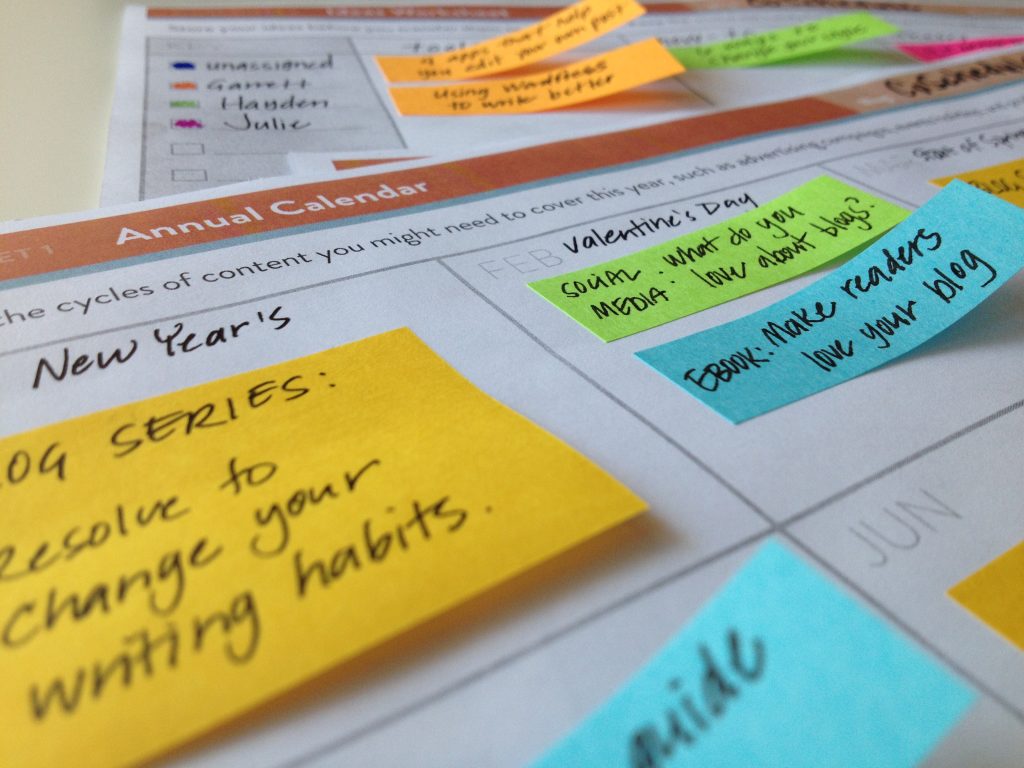 Ideas Worksheet
unassigned
Garrett
Hayden
Julie
4 apps that help
you edit your own post
Using WordPress
to write better
change your
ET 1
Annual Calendar
the cycles of content you might need to cover this year, such as advertising campaigns,
New Year's
OG SERIES:
resolve to
change your
writing habits.
FEB
Valentine's Day
SOCIAL MEDIA: What do you
love about blogs?
EBOOK: Make readers
love your blog
JUN
guide